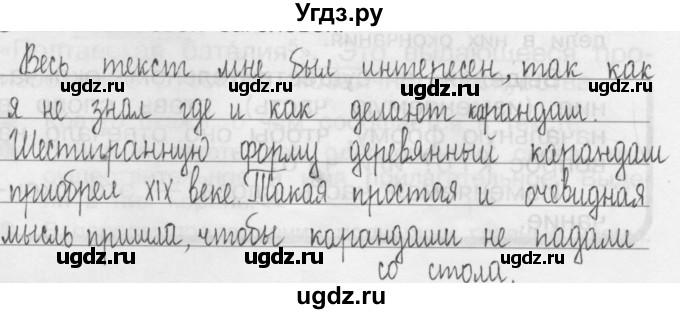 Угдз.ру
Весь текст мне был интересен, так как
я не знал где и как делают карандаш.
Шестигранную форму деревянный карандаш
приобрел XIX веке. Такая простая и очевидная
мысль пришла, чтобы карандаши не падали
со стола.
ugdz.ru ugdz.ru ugdz.ru
ugdz.ru ugdz.ru ugdz.ru
ugdz.ru ugdz.ru ugdz.ru
ugdz.ru